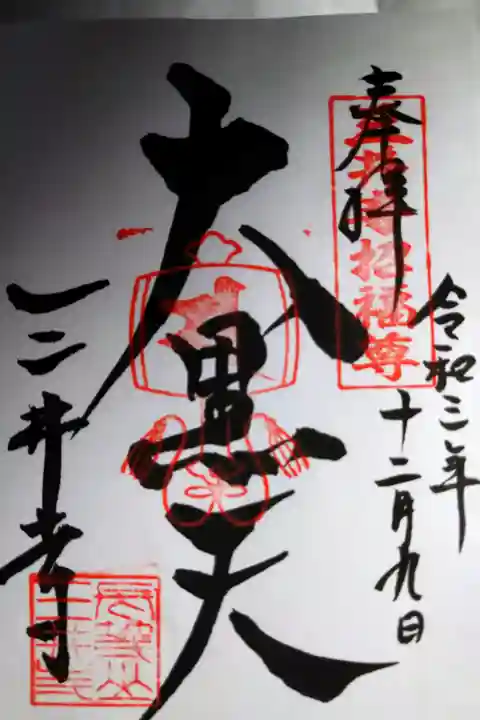 奉拝
三井寺招福尊
令和三年
十二月九日
大黒天
三井寺